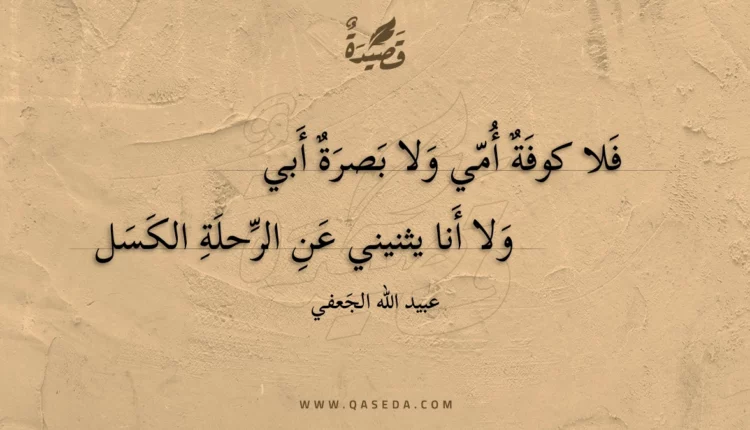 قَصِيْدَةٌ
فَلا كوفَةٌ أُمّي وَلا بَصرَةٌ أَبي
وَلا أَنا يثنيني عَنِ الرِّحلَةِ الكَسَل
عبيد الله الجَعفي
WWW.QASEDA.COM